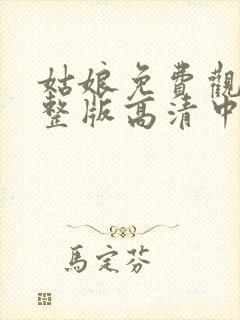 姑娘免費觀
整版高清中
馬定芬